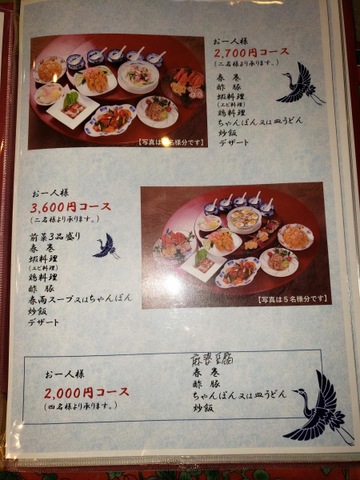 お一人様
2,700円コース
(二名様より承ります。)
春巻
酢豚
蝦料理
(エビ料理)
鶏料理
ちゃんぽん又は皿うどん
炒飯
デザート
お一人様
3,600円コース
(二名様より承ります。)
前菜3品盛り
春巻
蝦料理
(エビ料理)
鶏料理
酢豚
春雨スープ又はちゃんぽん
炒飯
デザート
【写真は5名様分です】
お一人様
2,000円コース
(四名様より承ります。)
麻婆豆腐
春巻
酢豚
ちゃんぽん又は皿うどん
炒飯